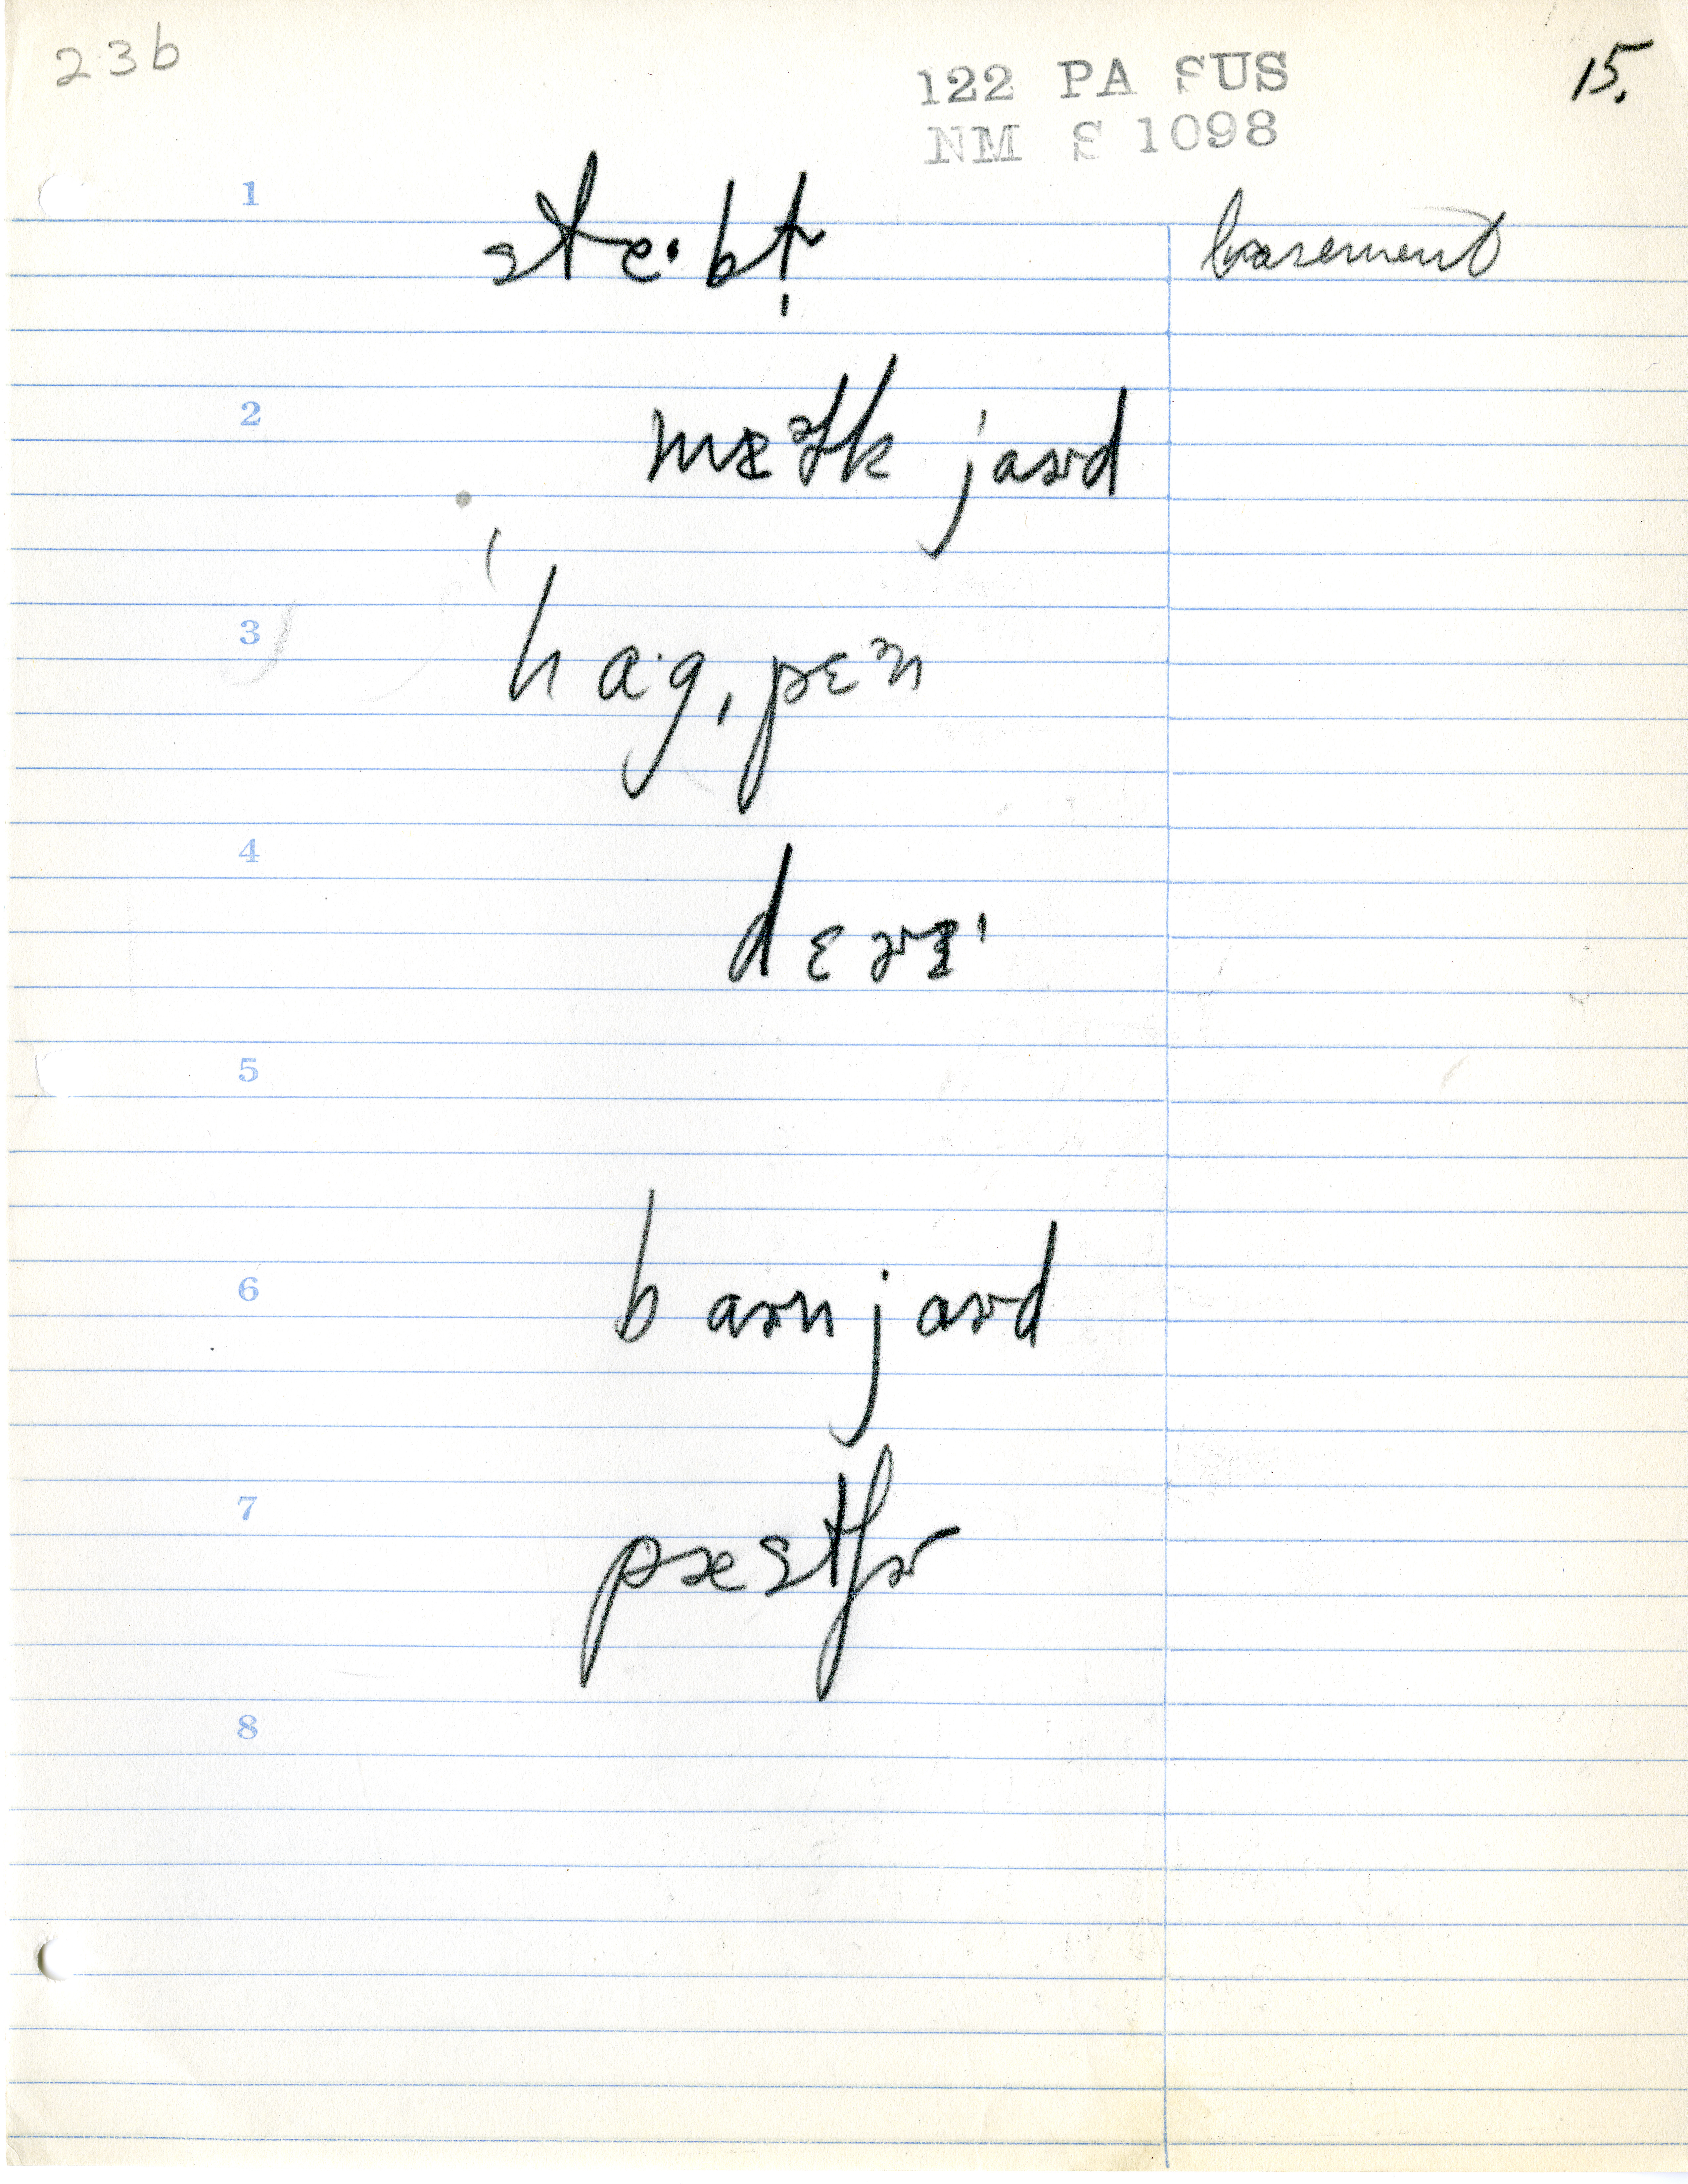 23b
122 PA SUS
NM S 1098
15.
1
ste·bl̩
basement
2
mɛəlk jaɚd
3
hɑ·g, pɛən
4
dɛɚɪ'
5
6
baɚn jaɚd
7
pæstʃɚ
8